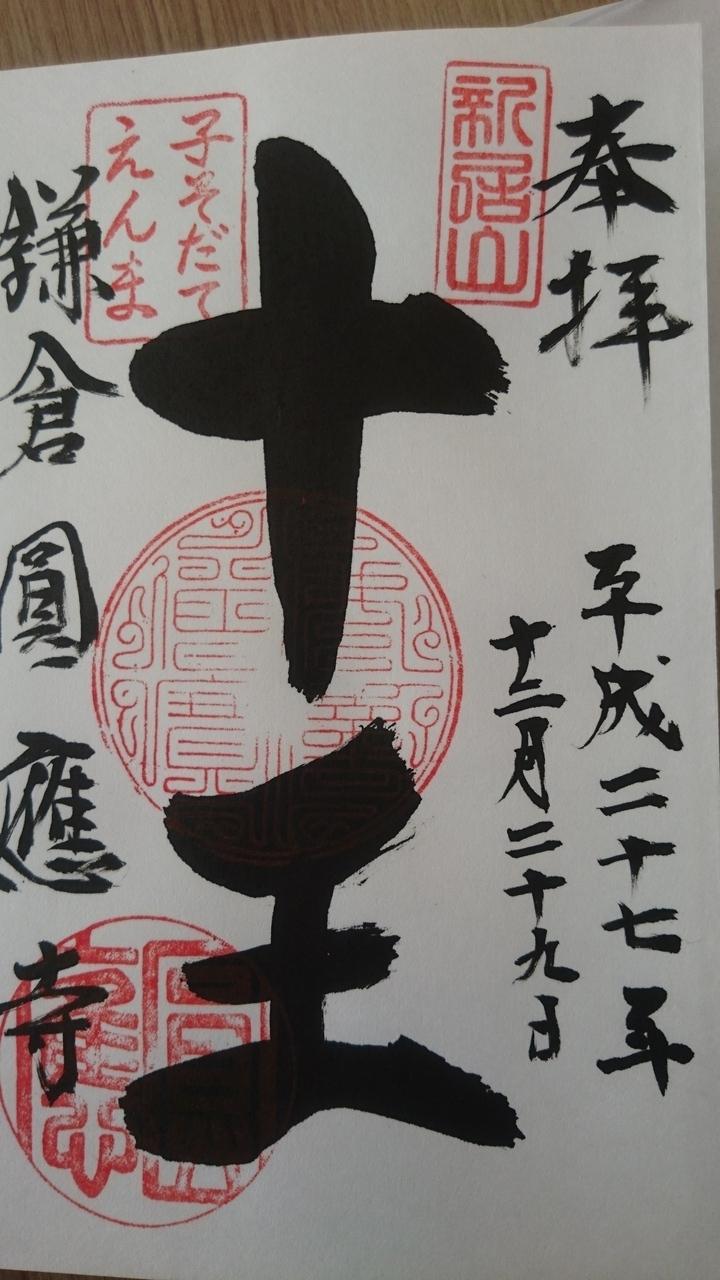 奉拝
新居山
平成二十七年
十二月二十九日
十王
子そだて
えんま
鎌倉圓應寺